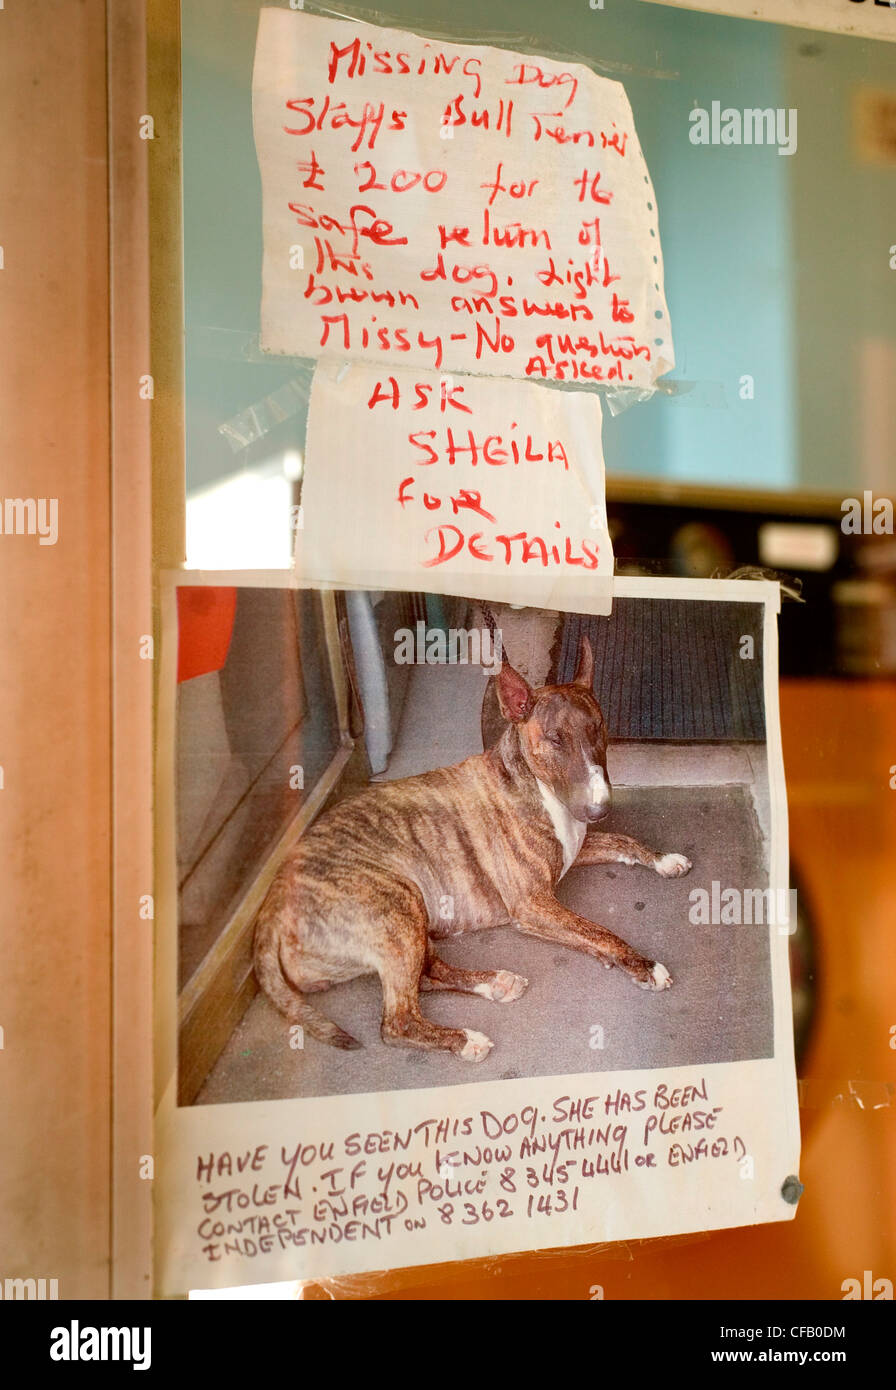 Missing Dog
Staffs Bull Terrier
£200 for th
safe return of
this dog. Light
brown answers to
Missy - No question
Asked.
ASK
SHEILA
FOR
DETAILS
HAVE YOU SEEN THIS DOG. SHE HAS BEEN
STOLEN. IF YOU KNOW ANYTHING PLEASE
CONTACT ENFIELD POLICE 8 345 4441 OR ENFIELD
INDEPENDENT ON 8 362 1431
alamy
Image ID: CFB0DM
www.alamy.com